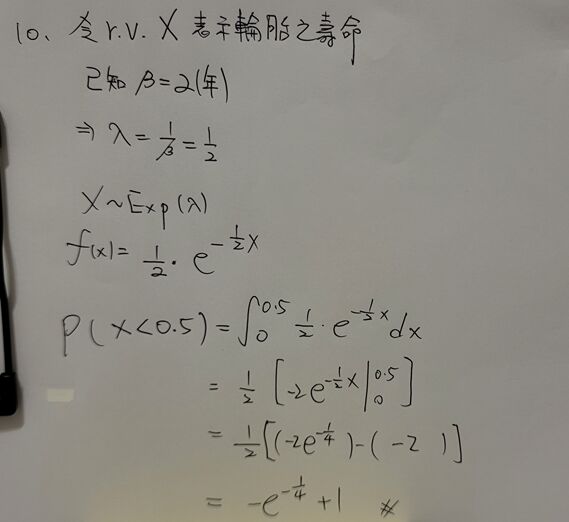 10、令 r.v. X 表示輪胎之壽命
已知 β=2(年)
⇒ λ = 1/β = 1/2
X~Exp(λ)
f(x)= 1/2 · e^(-1/2 x)
P(X<0.5) = ∫_0^0.5 1/2 · e^(-1/2 x) dx
= 1/2 [-2e^(-1/2 x) |_0^0.5]
= 1/2 [(-2e^(-1/4)) - ( -2 )]
= -e^(-1/4) +1 #